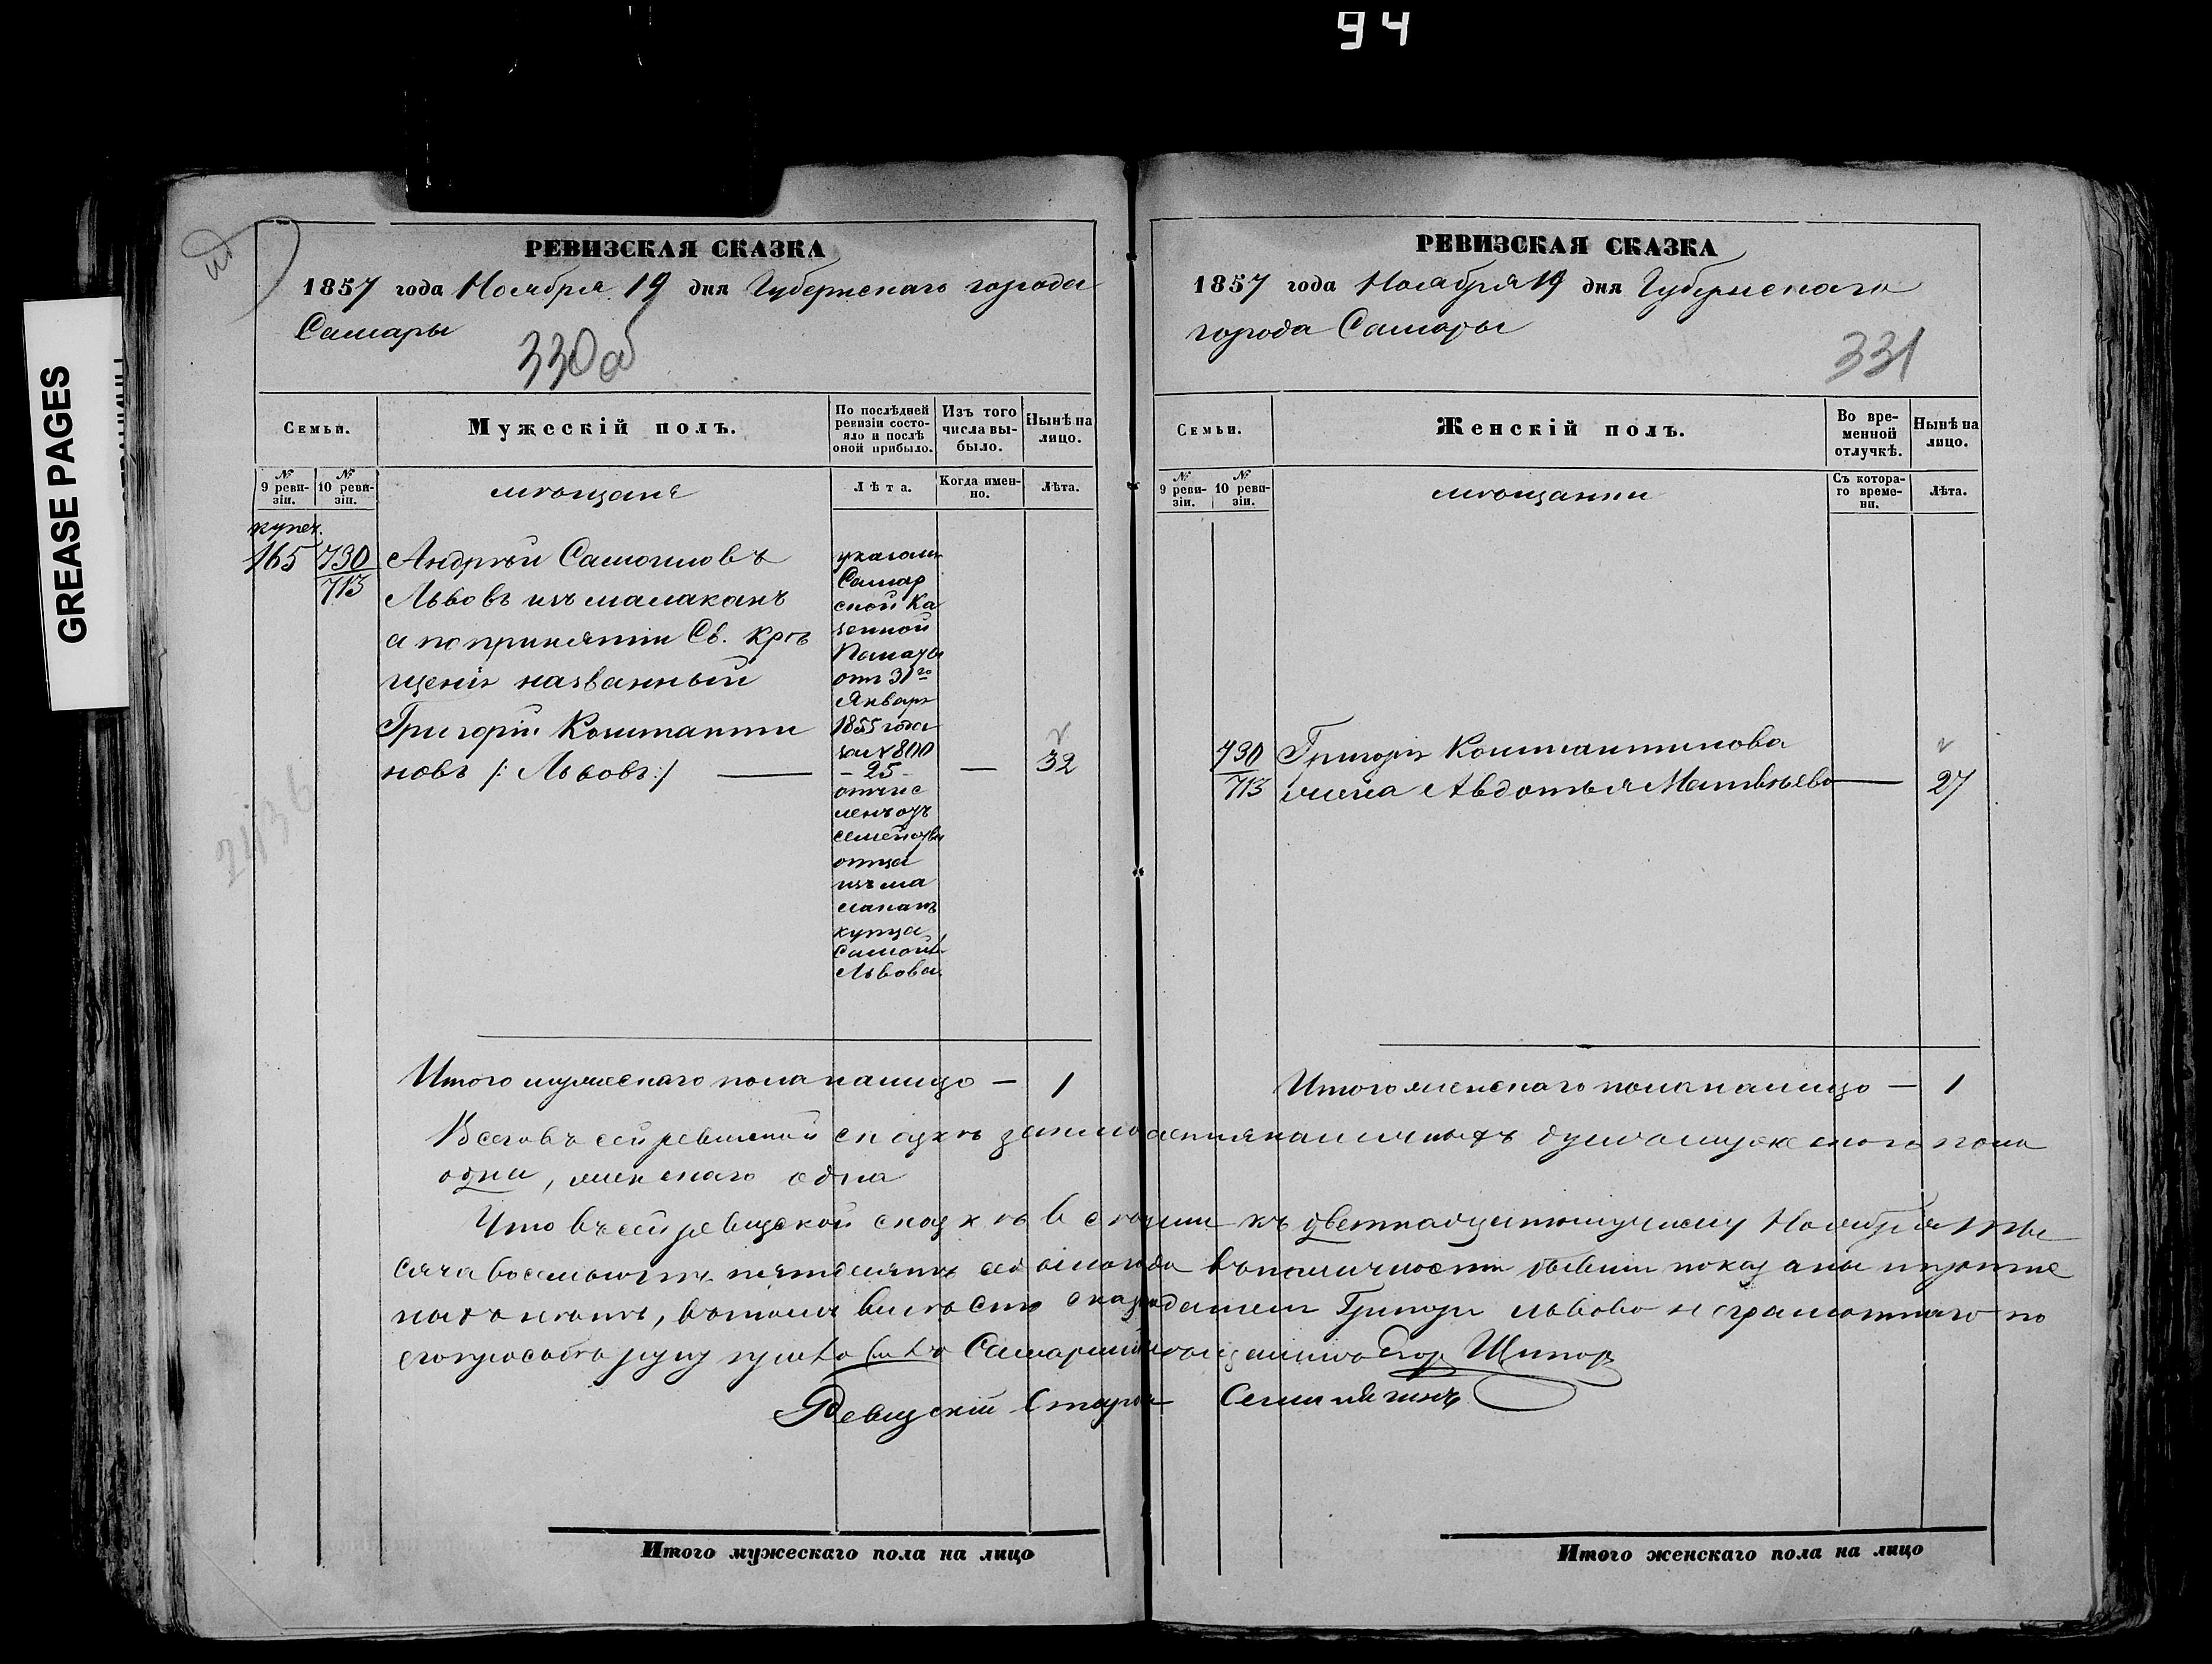 94
GREASE PAGES
РЕВИЗСКАЯ СКАЗКА
1857 года Ноября 19 дня Губернскаго города
Самары
330 об
Семьи.
Мужескій полъ.
По послѣдней ревизіи состояло и послѣ оной прибыло.
Изъ того числа выбыло.
Нынѣ на лицо.
№ 9 ревизіи.
№ 10 ревизіи.
мѣщане
Лѣта.
Когда именно.
Лѣта.
купеч.
165
730
713
Андрѣй Самоиловъ
Львовъ изъ малаканъ
а по принятіи Св. Крѣ
щенія названный
Григорій Константи
новъ /: Львовъ:/ —
указомъ
Самар
ской Ка
зенной
Палаты
отъ 31го
Января
1855 года
за № 800
- 25 -
отчис
ленъ изъ
семейства
отца
изъ ма
лаканъ
купца
Самойл
Львова.
—
32
Итого мужескаго пола налицо — 1
РЕВИЗСКАЯ СКАЗКА
1857 года Ноября 19 дня Губернскаго
города Самары
331
Семьи.
Женскій полъ.
Во временной отлучкѣ.
Нынѣ на лицо.
№ 9 ревизіи.
№ 10 ревизіи.
мѣщанки
Съ котораго времени.
Лѣта.
730
713
Григорія Константинова
жена Авдотья Матвѣева —
27
Итого женскаго пола налицо — 1
Всего въ сей ревизской сказкѣ наличныхъ душъ мужескаго пола
одна, женскаго одна
Что въ сей ревизской сказкѣ всѣ къ Ноября ты
сяча восемьсотъ пятьдесятъ седьмаго года въ наличности бывши показаны и прописныхъ
нѣтъ, въ томъ вмѣсто сказкодателя Григорія Львова неграмотнаго по
его прозьбѣ руку приложилъ Самарскій мѣщанинъ Егор
Ревизскій Староста
Итого мужескаго пола на лицо
Итого женскаго пола на лицо